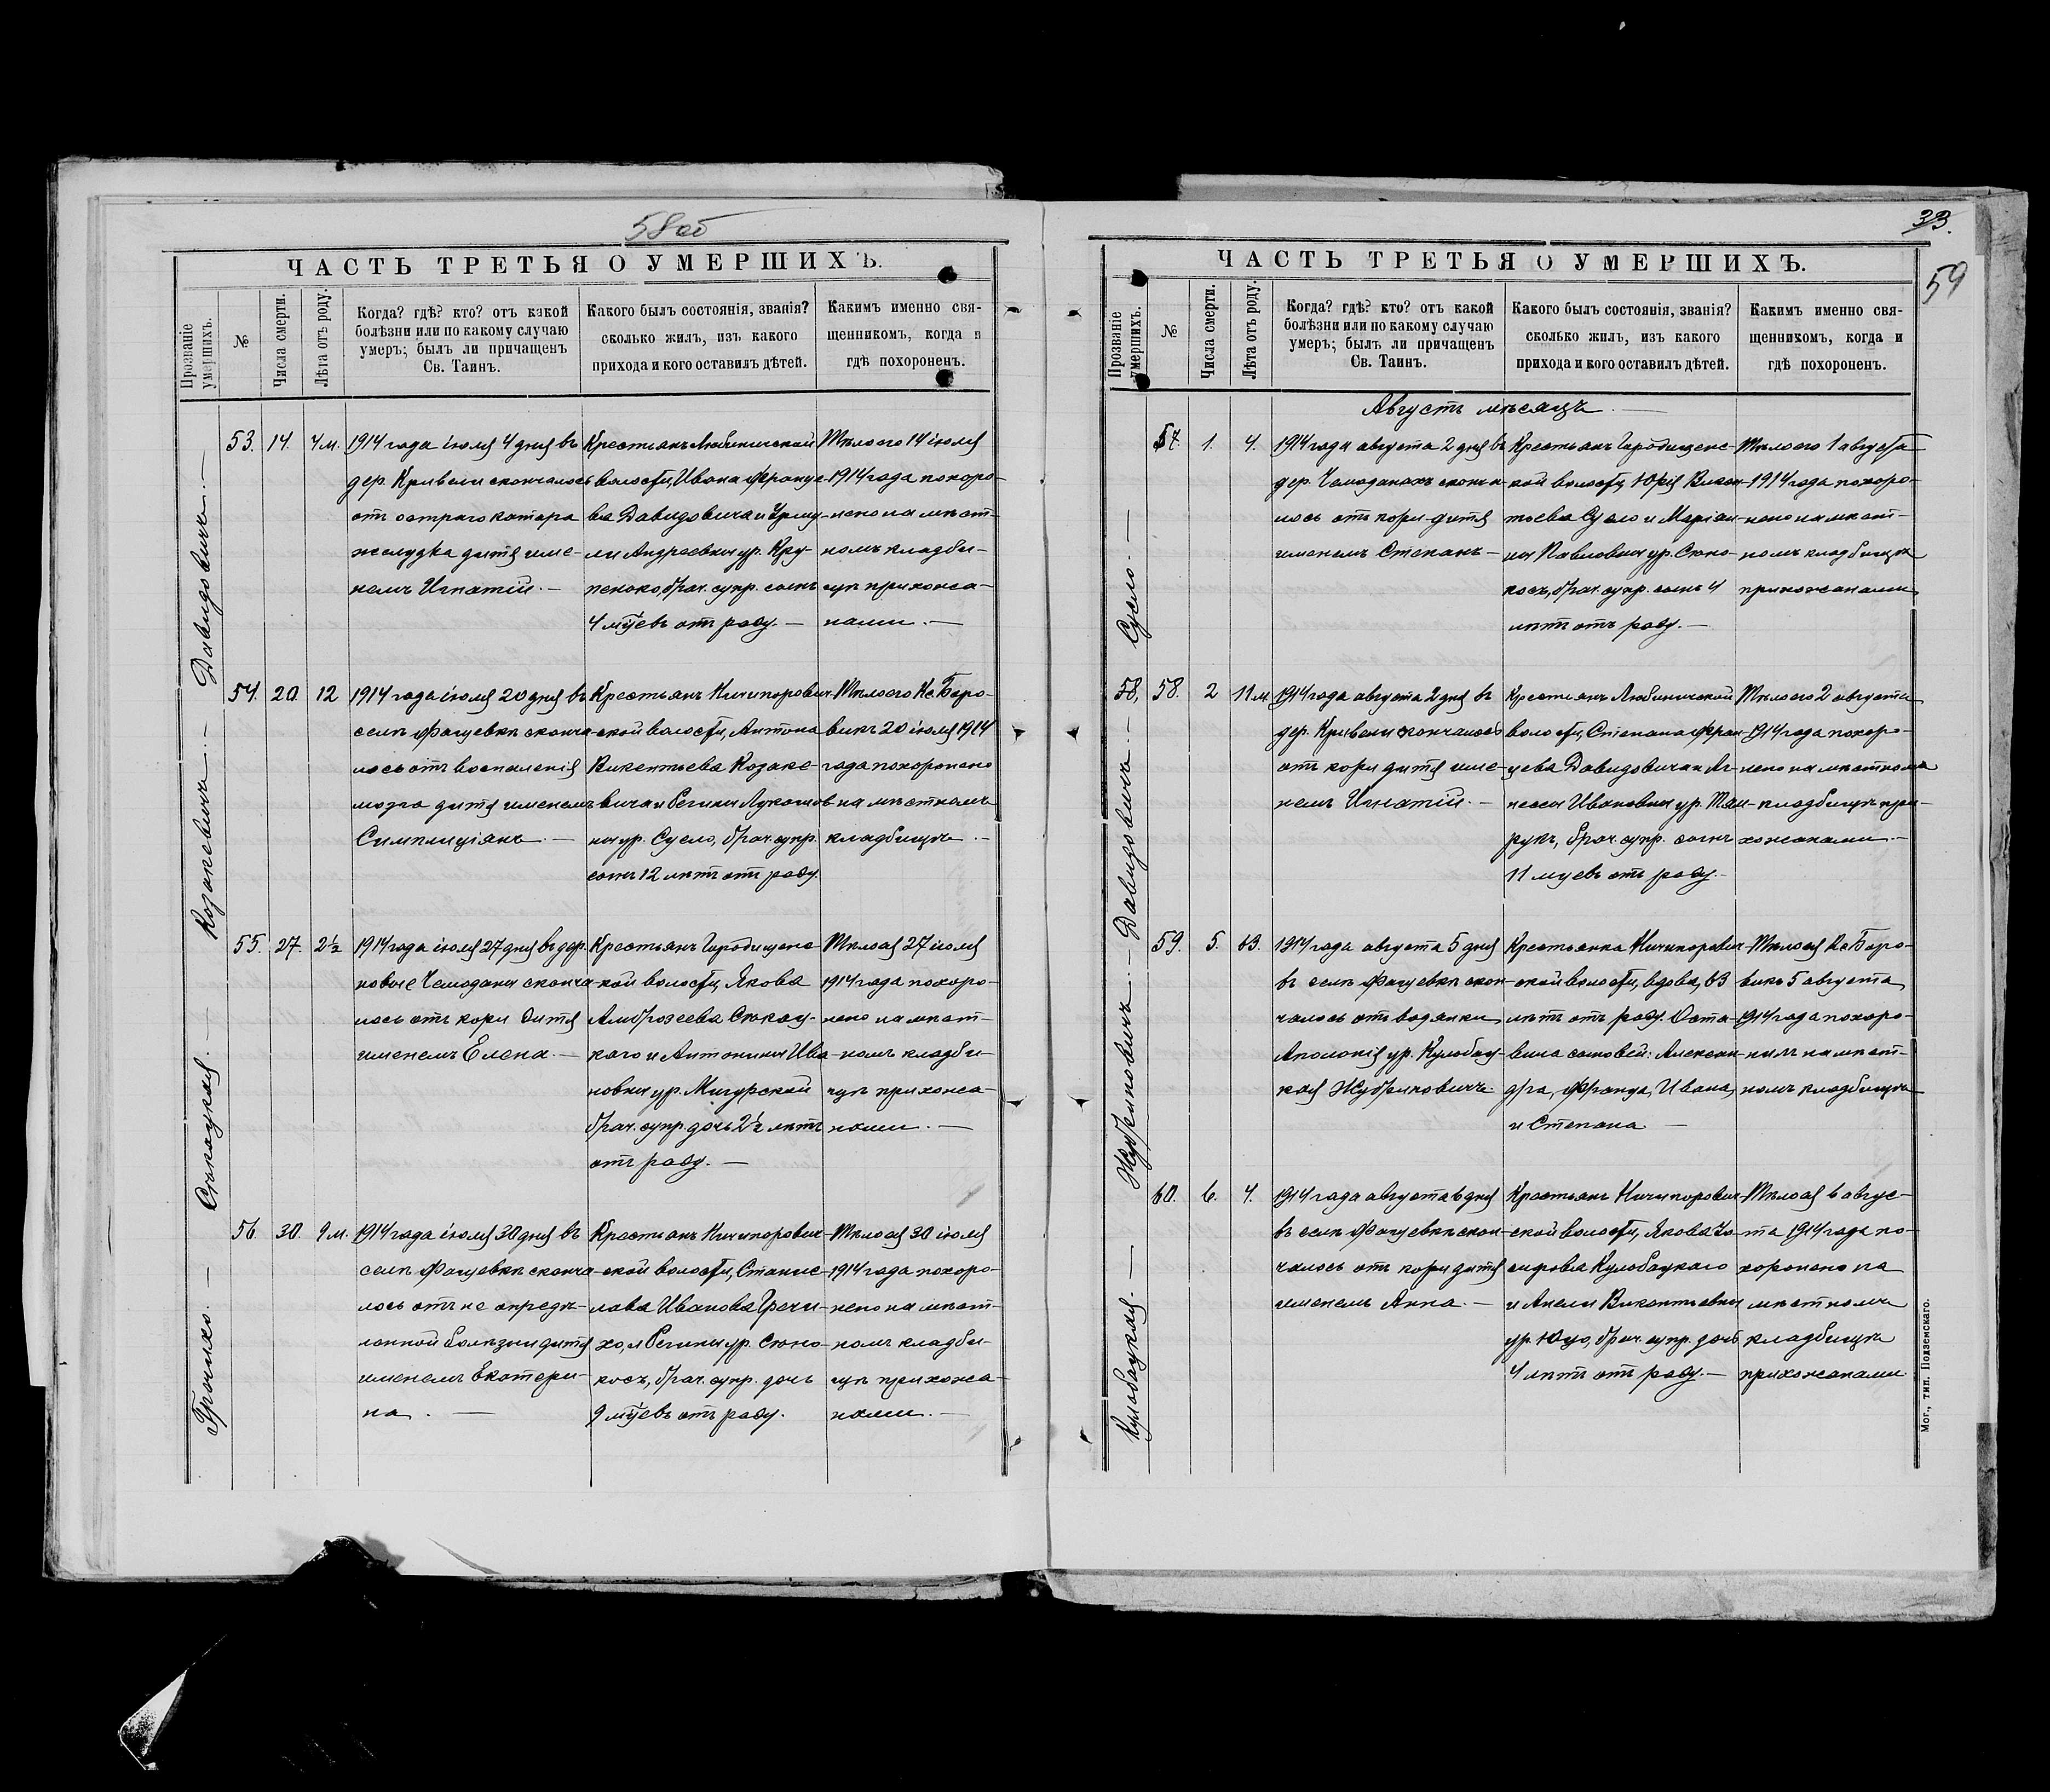 58 об
ЧАСТЬ ТРЕТЬЯ О УМЕРШИХЪ.
Прозваніе умершихъ.
№
Числа смерти.
Лѣта отъ роду.
Когда? гдѣ? кто? отъ какой
болѣзни или по какому случаю
умеръ; былъ ли причащенъ
Св. Таинъ.
Какого былъ состоянія, званія?
сколько жилъ, изъ какого
прихода и кого оставилъ дѣтей.
Какимъ именно свя-
щенникомъ, когда и
гдѣ похороненъ.
Давидовичъ. —
53. 14. 4 м.
1914 года іюля 4 дня въ
дер. Кривели скончалось
отъ остраго катара
желудка дитя име-
немъ Игнатій. —
Крестьянъ Любиничской
волости, Ивана Франце-
ва Давидовича и Уршу-
ли Андреевны ур. Кру-
пенко, брач. супр. сынъ
4 мцевъ отъ роду. —
Тѣло его 14 іюля
1914 года похоро-
нено на мѣст-
номъ кладби-
щѣ прихожа-
нами. —
Козакевичъ. —
54. 20. 12
1914 года іюля 20 дня въ
селѣ Фащевкѣ сконча-
лось отъ воспаленія
мозга дитя именемъ
Симплиціянъ. —
Крестьянъ Ничипорович-
ской волости, Антона
Викентьева Козаке-
вича и Регины Лукашов-
ны ур. Сусло, брач. супр.
сынъ 12 лѣтъ отъ роду.
Тѣло его Кс. Боро-
викъ 20 іюля 1914
года похоронено
на мѣстномъ
кладбищѣ. —
55. 27. 2½
1914 года іюля 27 дня въ дер.
новые Чемоданы сконча-
лось отъ кори дитя
именемъ Елена. —
Крестьянъ Городищенс-
кой волости, Якова
Амброзеева Сюкац-
каго и Антонины Ива-
новны ур. Мигурской
брач. супр. дочь 2½ лѣтъ
отъ роду. —
Тѣло ея 27 іюля
1914 года похоро-
нено на мѣст-
номъ кладби-
щѣ прихожа-
нами. —
56. 30. 9 м.
1914 года іюля 30 дня въ
селѣ Фащевкѣ сконча-
лось отъ не опредѣ-
ленной болѣзни дитя
именемъ Екатери-
на. —
Крестьянъ Ничипорович-
ской волости, Станис-
лава Иванова Гречи-
хо, и Регины ур. Сюно-
косъ, брач. супр. дочь
9 мцевъ отъ роду.
Тѣло ея 30 іюля
1914 года похоро-
нено на мѣст-
номъ кладби-
щѣ прихожа-
нами. —
33.
59
ЧАСТЬ ТРЕТЬЯ О УМЕРШИХЪ.
Прозваніе умершихъ.
№
Числа смерти.
Лѣта отъ роду.
Когда? гдѣ? кто? отъ какой
болѣзни или по какому случаю
умеръ; былъ ли причащенъ
Св. Таинъ.
Какого былъ состоянія, званія?
сколько жилъ, изъ какого
прихода и кого оставилъ дѣтей.
Какимъ именно свя-
щенникомъ, когда и
гдѣ похороненъ.
Августъ мѣсяцъ. —
Сусло. —
57. 1. 4.
1914 года августа 2 дня въ
дер. Чемоданахъ сконча-
лось отъ кори дитя
именемъ Степанъ —
Крестьянъ Городищенс-
кой волости, Юрія Викен-
тьева Сусло и Маріан-
ны Павловны ур. Сюно-
косъ, брач. супр. сынъ 4
лѣтъ отъ роду. —
Тѣло его 1 августа
1914 года похоро-
нено на мѣст-
номъ кладбищѣ
прихожанами
Давидовичъ. —
58, 58. 2 11 м.
1914 года августа 2 дня въ
дер. Кривели скончалось
отъ кори дитя име-
немъ Игнатій. —
Крестьянъ Любиничской
волости, Степана Фран-
цева Давидовича и Аг-
нессы Ивановны ур.
брач. супр. сынъ
11 мцевъ отъ роду. —
Тѣло его 2 августа
1914 года похоро-
нено на мѣстномъ
кладбищѣ при-
хожанами —
59. 5. 63.
1914 года августа 5 дня
въ селѣ Фащевкѣ скон-
чалось отъ водянки
Аполонія ур. Кулобац-
кая Жубриновичъ.
Крестьянка Ничипорович-
ской волости, вдова, 63
лѣтъ отъ роду. Оста-
вила сыновей: Алексан-
дра, Франца, Ивана,
и Степана —
Тѣло ея Кс. Боро-
викъ 5 августа
1914 года похоро-
нилъ на мѣст-
номъ кладбищѣ
Кулобацкая. —
60. 6. 4.
1914 года августа 6 дня
въ селѣ Фащевкѣ скон-
чалось отъ кори дитя
именемъ Анна. —
Крестьянъ Ничипорович-
ской волости, Якова Іо-
сифова Кулобацкаго
и Анели Викентьевны
ур. Юцо, брач. супр. дочь
4 лѣтъ отъ роду. —
Тѣло ея 6 авгус-
та 1914 года по-
хоронено на
мѣстномъ
кладбищѣ
прихожанами
Мог., тип. Подземскаго.